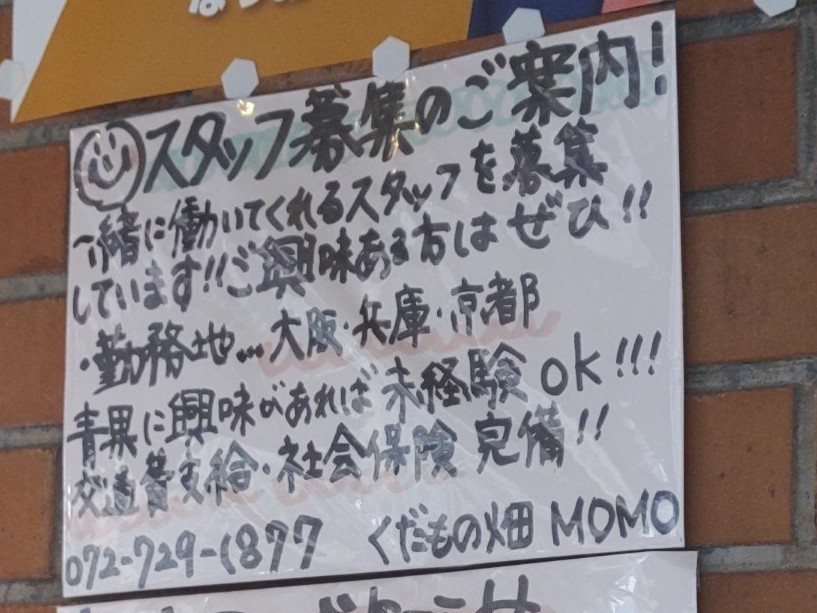 スタッフ募集のご案内!
一緒に働いてくれるスタッフを募集
しています!!ご興味ある方はぜひ!!
・勤務地...大阪・兵庫・京都
青果に興味があれば未経験ok!!!
交通費支給・社会保険完備!!
072-729-1877 くだもの畑 MOMO